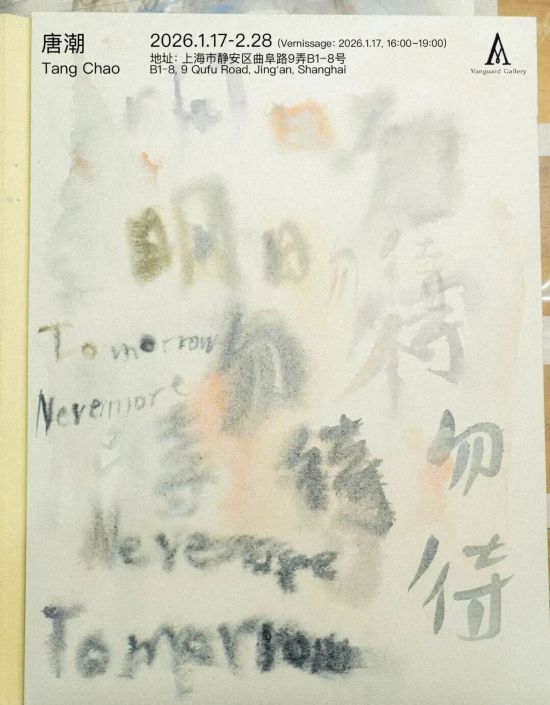 唐潮
Tang Chao
2026.1.17-2.28 (Vernissage: 2026.1.17, 16:00-19:00)
地址: 上海市静安区曲阜路9弄B1-8号
B1-8, 9 Qufu Road, Jing'an, Shanghai
Vanguard Gallery
明日
勿
待
Tomorrow
Nevermore
勿
待
待
勿
待
Nevermore
Tomorrow